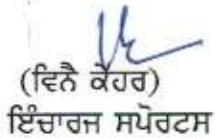 (ਵਿਨੈ ਕੌਹਰ)
ਇੰਚਾਰਜ ਸਪੋਰਟਸ